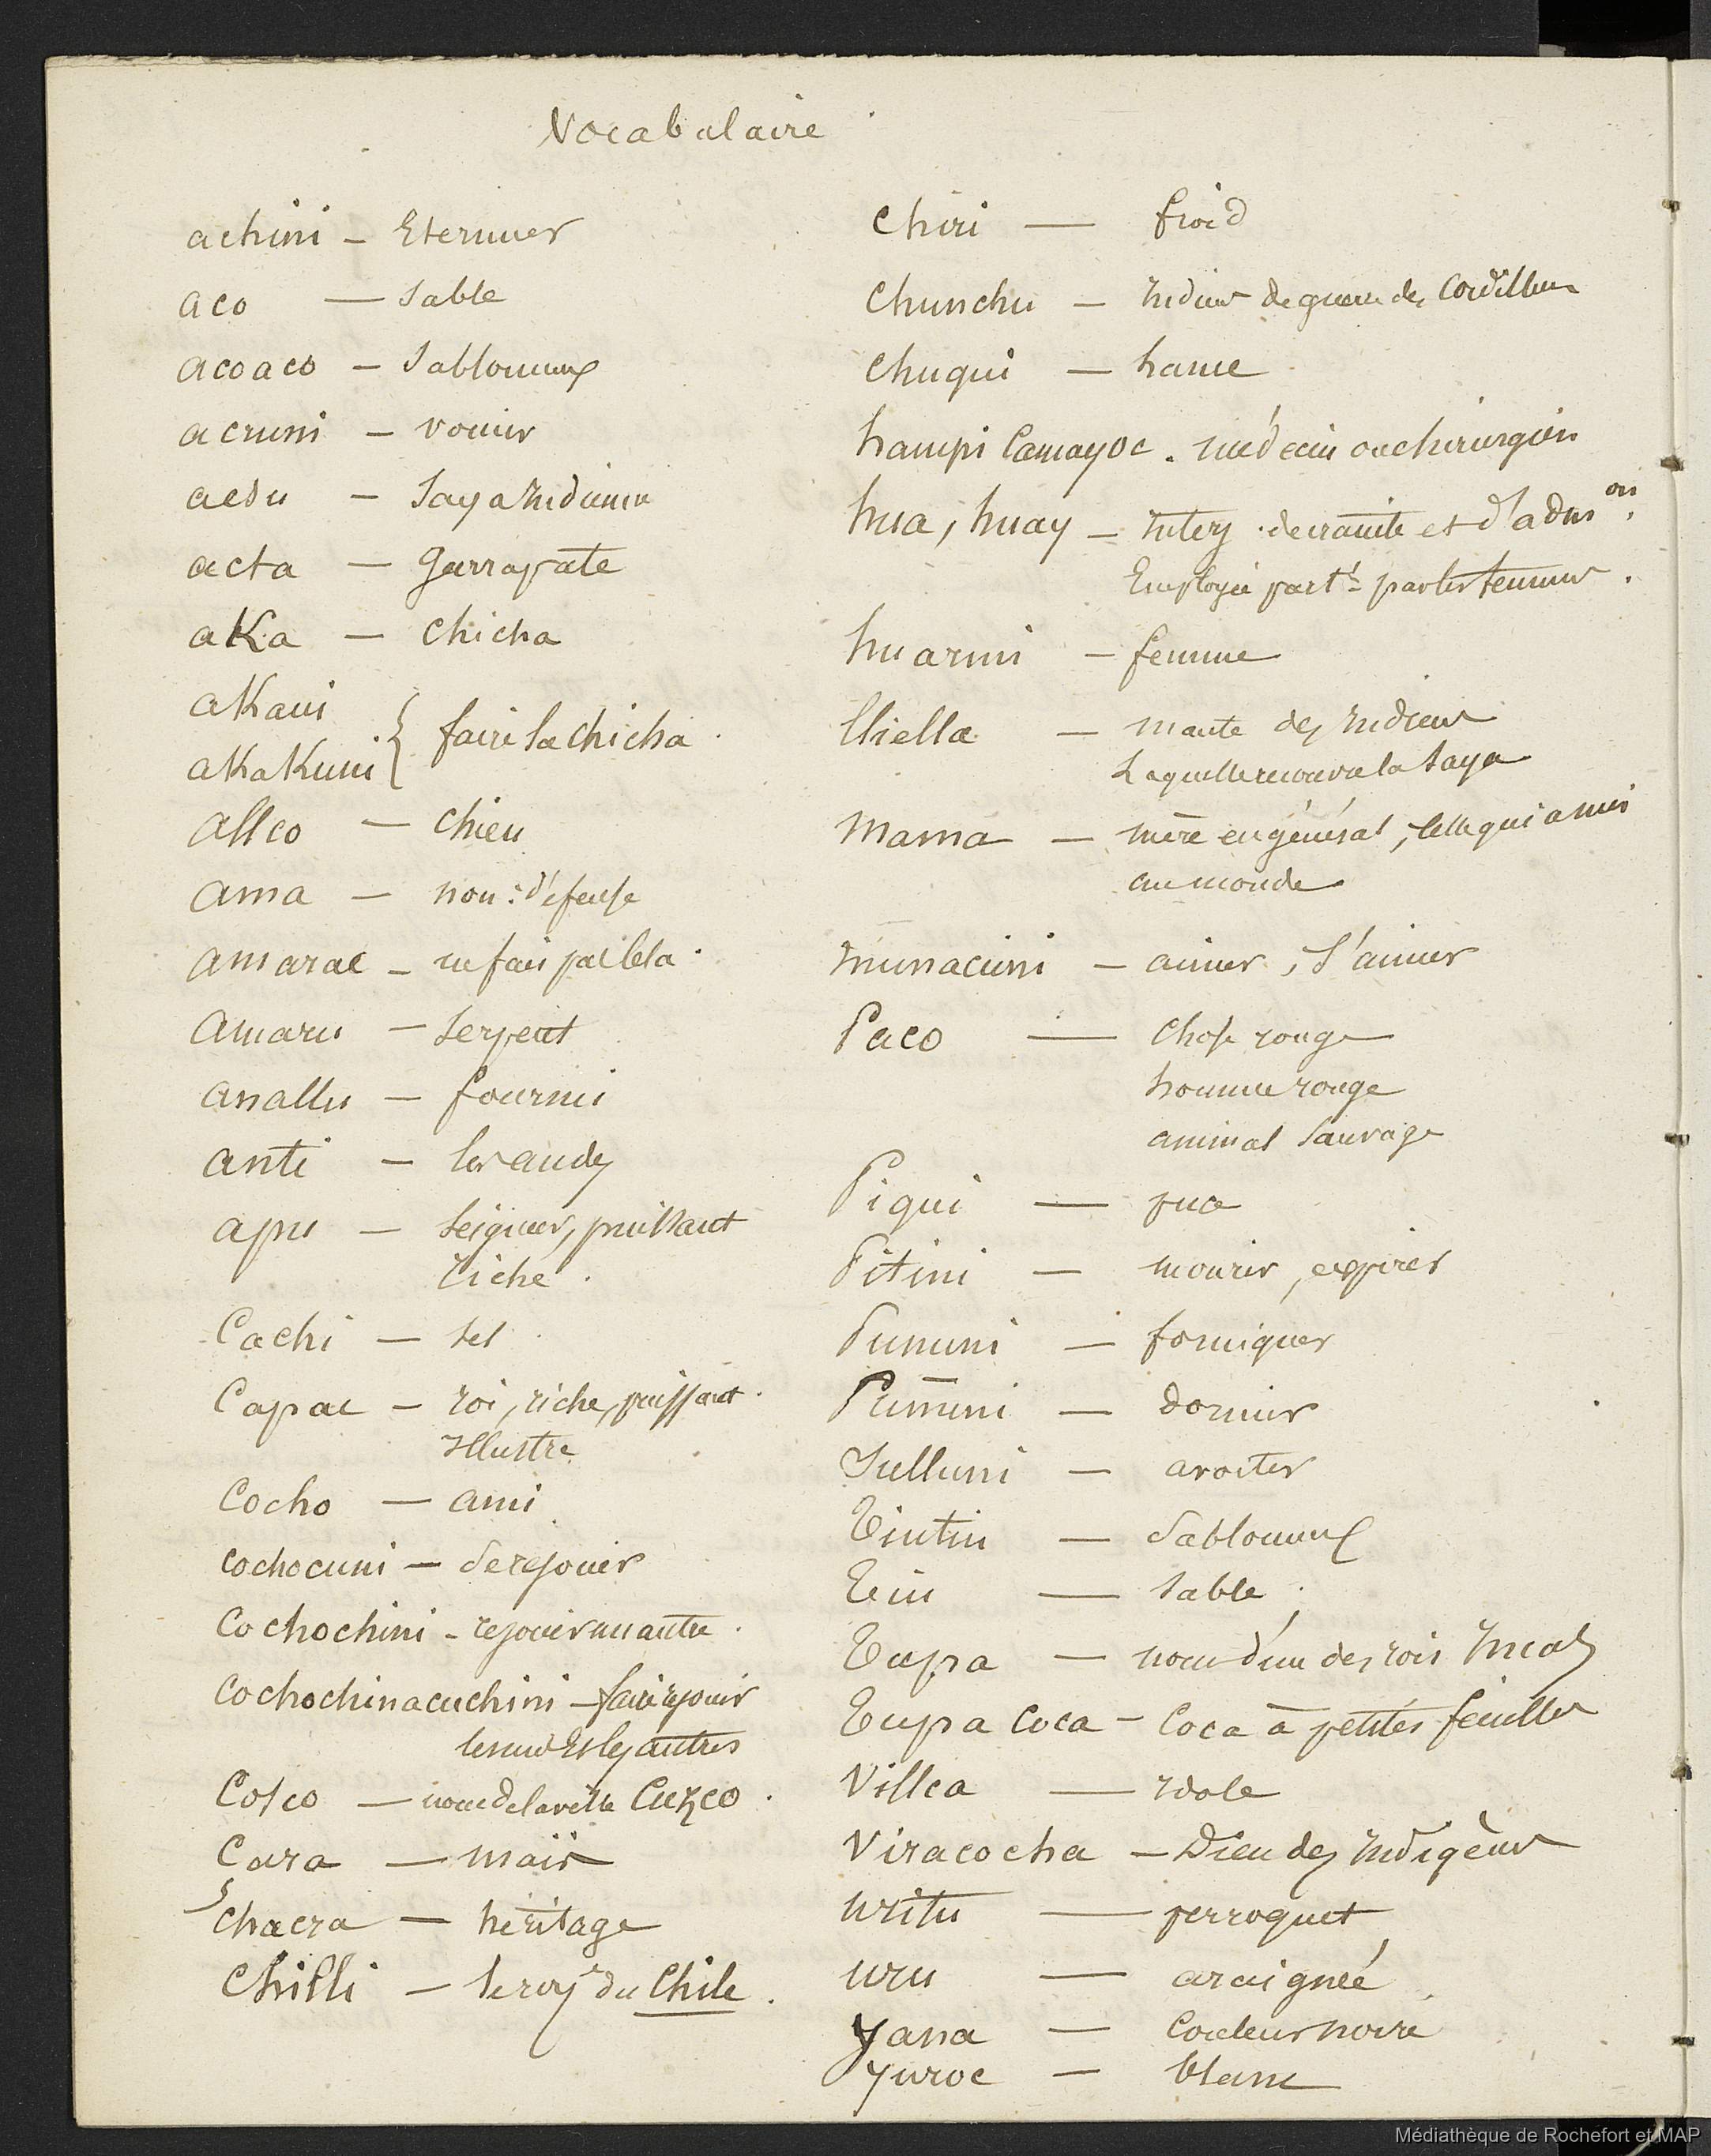 Vocabulaire
achini - Eternuer
aco - Sable
acoaco - Sablonneux
acruni - vomir
acsu - Saya Indienne
acta - Garrapate
aka - Chicha
akani
akakuni } faire la chicha.
allco - chien
ama - non: défense
amarac - ne fais pas cela.
amaru - Serpent
anallu - fourmi
anti - les andes
apu - Seigneur, puissant
riche.
Cachi - sel.
Capac - roi, riche, puissant.
Illustre
Cocho - ami
cochocuni - se rejouir
Cochochini - rejouir un autre.
Cochochinacuchini - faire rejouir
les uns Et les autres
Cosco - nom de la ville Cuzco.
Cara - maïs
Chacra - héritage
Chilli - le roy. du Chile.
Chiri - froid
Chunchu - Indiens de guerre des Cordilleres
Chuqui - lance
hampi Camayoc. médecin ou chirurgien
hua, huay - Interj. de crainte et d'adm.on
Employée part.t par les femmes.
huarmi - femme
lliella - mante des Indiens
Laquelle recouvre la Saya
Mama - mère en général, celle qui a mis
au monde
munacuni - aimer, s'aimer
Paco - Chose rouge
homme rouge
animal Sauvage
Piqui - puce
Pitini - mourir, expirer
Pununi - forniquer
Puñuni - dormir
Sulluni - avorter
Tiutiu - Sablonneux
Tiu - Sable.
Tupa - nom d'un des rois Incas
Tupa Coca - Coca à petites feuilles
Villca - Idole
Viracocha - Dieu des Indigènes
uritu - perroquet
uru - araignée.
yana - Couleur noire
yuroc - blanc
Médiathèque de Rochefort et MAP